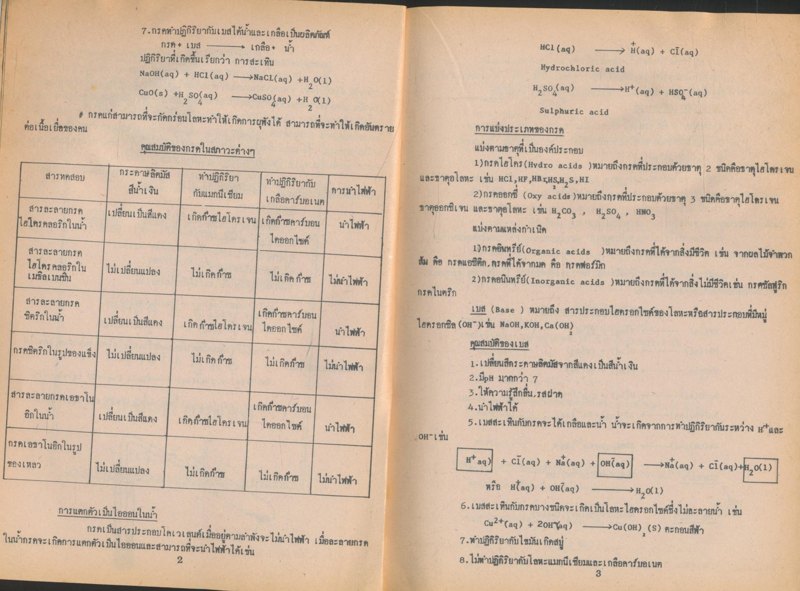 7.กรดทำปฏิกิริยากับเบสได้น้ำและเกลือเป็นผลิตภัณฑ์
กรด+ เบส ⟶ เกลือ+ น้ำ
ปฏิกิริยาที่เกิดขึ้นเรียกว่า การสะเทิน
NaOH(aq) + HCl(aq) ⟶NaCL(aq) +H2O(l)
CuO(s) +H2SO4(aq) ⟶CuSO4(aq) +H2O(l)
# กรดแก่สามารถที่จะกัดกร่อนโลหะทำให้เกิดการผุพังได้ สามารถที่จะทำให้เกิดอันตราย
ต่อเนื้อเยื่อของคน
คุณสมบัติของกรดในสภาวะต่างๆ
สารทดสอบ กระดาษลิตมัสสีน้ำเงิน ทำปฏิกิริยากับแมกนีเซียม ทำปฏิกิริยากับเกลือคาร์บอเนต การนำไฟฟ้า
สารละลายกรดไฮโดรคลอริกในน้ำ เปลี่ยนเป็นสีแดง เกิดก๊าซไฮโดรเจน เกิดก๊าซคาร์บอนไดออกไซด์ นำไฟฟ้า
สารละลายกรดไฮโดรคลอริกในเมธิลเบนซิน ไม่เปลี่ยนแปลง ไม่เกิดก๊าซ ไม่เกิดก๊าซ ไม่นำไฟฟ้า
สารละลายกรดซิตริกในน้ำ เปลี่ยนเป็นสีแดง เกิดก๊าซไฮโดรเจน เกิดก๊าซคาร์บอนไดออกไซด์ นำไฟฟ้า
กรดซิตริกในรูปของแข็ง ไม่เปลี่ยนแปลง ไม่เกิดก๊าซ ไม่เกิดก๊าซ ไม่นำไฟฟ้า
สารละลายกรดเอซาโนอิกในน้ำ เปลี่ยนเป็นสีแดง เกิดก๊าซไฮโดรเจน เกิดก๊าซคาร์บอนไดออกไซด์ นำไฟฟ้า
กรดเอซาโนอิกในรูปของเหลว ไม่เปลี่ยนแปลง ไม่เกิดก๊าซ ไม่เกิดก๊าซ ไม่นำไฟฟ้า
การแตกตัวเป็นไอออนในน้ำ
กรดเป็นสารประกอบโคเวเลนต์เมื่ออยู่ตามลำพังจะไม่นำไฟฟ้า เมื่อละลายกรด
ในน้ำกรดจะเกิดการแตกตัวเป็นไอออนและสามารถที่จะนำไฟฟ้าได้เช่น
2
HCl(aq) ⟶ H⁺(aq) + Cl⁻(aq)
Hydrochloric acid
H2SO4(aq) ⟶H⁺(aq) + HSO4⁻(aq)
Sulphuric acid
การแบ่งประเภทของกรด
แบ่งตามธาตุที่เป็นองค์ประกอบ
1)กรดไฮโดร(Hydro acids )หมายถึงกรดที่ประกอบด้วยธาตุ 2 ชนิดคือธาตุไฮโดรเจน
และธาตุอโลหะ เช่น HCl,HF,HBr,H2S,HI
2)กรดออกซี่ (Oxy acids)หมายถึงกรดที่ประกอบด้วยธาตุ 3 ชนิดคือธาตุไฮโดรเจน
ธาตุออกซิเจน และธาตุอโลหะ เช่น H2CO3 , H2SO4 , HNO3
แบ่งตามแหล่งกำเนิด
1)กรดอินทรีย์(Organic acids )หมายถึงกรดที่ได้จากสิ่งมีชีวิต เช่น จากผลไม้จำพวก
ส้ม คือ กรดแอซิติก,กรดที่ได้จากมด คือ กรดฟอร์มิก
2)กรดอนินทรีย์(Inorganic acids )หมายถึงกรดที่ได้จากสิ่งไม่มีชีวิตเช่น กรดซัลฟูริก
กรดไนตริก
เบส (Base ) หมายถึง สารประกอบไฮดรอกไซด์ของโลหะหรือสารประกอบที่มีหมู่
ไฮดรอกซิล(OH⁻)เช่น NaOH,KOH,Ca(OH)2
คุณสมบัติของเบส
1.เปลี่ยนสีกระดาษลิตมัสจากสีแดงเป็นสีน้ำเงิน
2.มีpH มากกว่า 7
3.ให้ความรู้สึกลื่น,รสฝาด
4.นำไฟฟ้าได้
5.เบสสะเทินกับกรดจะได้เกลือและน้ำ น้ำจะเกิดจากการทำปฏิกิริยากันระหว่าง H⁺และ
OH⁻เช่น
H⁺aq) + Cl⁻(aq) + Na⁺(aq) + OH⁻(aq) ⟶Na⁺(aq) + Cl⁻(aq)+H2O(l)
หรือ H⁺(aq) + OH⁻(aq) ⟶H2O(l)
6.เบสสะเทินกับกรดบางชนิดจะเกิดเป็นโลหะไฮดรอกไซด์ซึ่งไม่ละลายน้ำ เช่น
Cu²⁺(aq) + 2OH⁻(aq) ⟶Cu(OH)2(S) ตะกอนสีฟ้า
7.ทำปฏิกิริยากับไขมันเกิดสบู่
8.ไม่ทำปฏิกิริยากับโลหะแมกนีเซียมและเกลือคาร์บอเนต
3